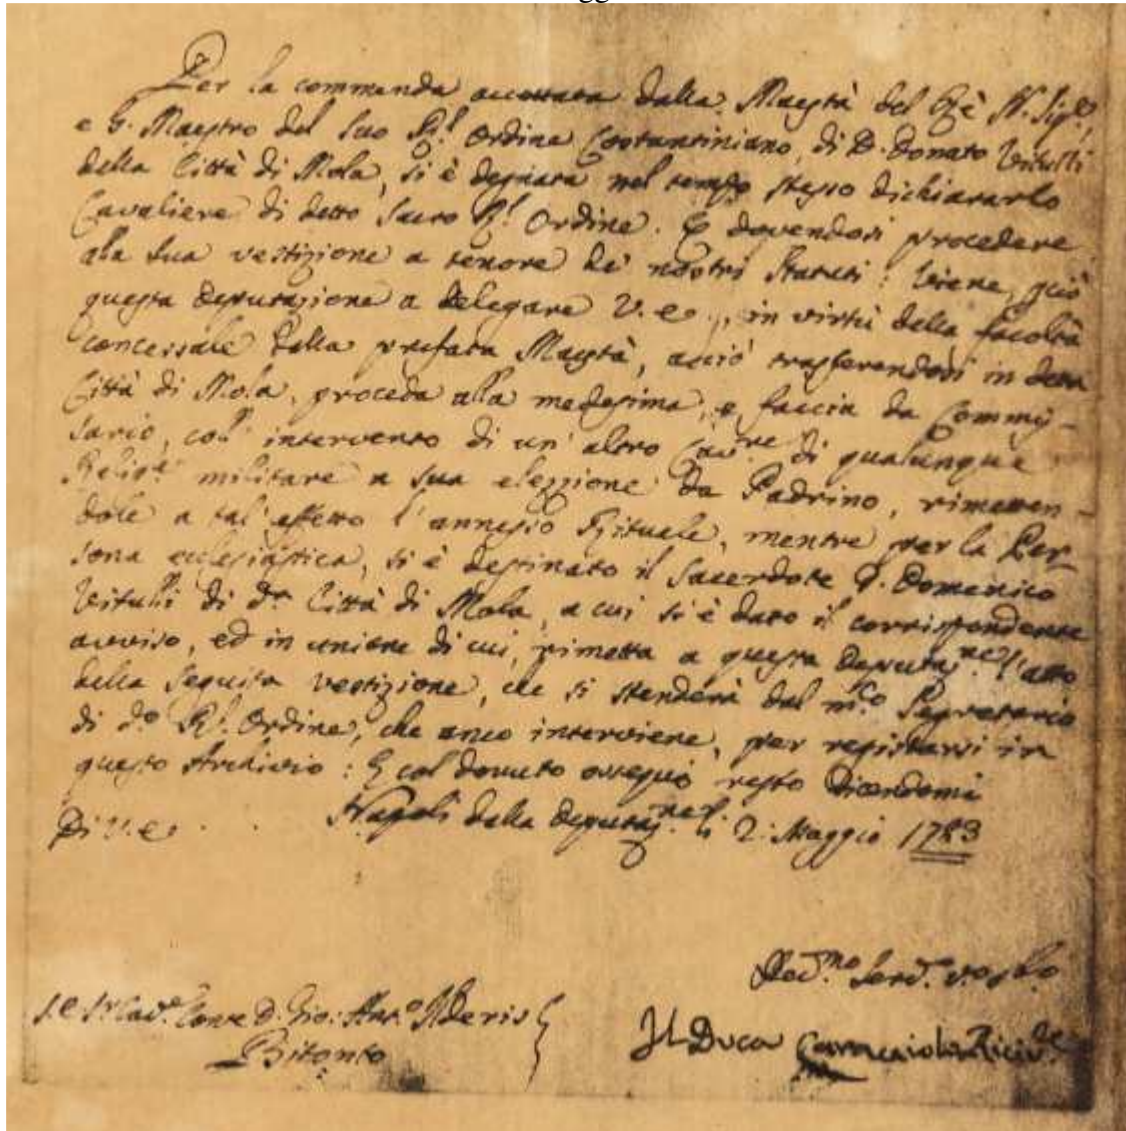 Per la commenda accettata dalla Maestà del Rè N. Sig.e,
e G. Maestro del suo R.l Ordine Costantiniano, di D. Donato Vitulli
della Città di Mola, si è degnata nel tempo stesso dichiararlo
Cavaliere di detto Sacro R.l Ordine. E dovendosi procedere
alla sua vestizione a tenore de' nostri Statuti: viene, perciò
questa Deputazione a delegare V.E., in virtù della facoltà
concessale dalla prefata Maestà, acciò trasferendosi in detta
Città di Mola, proceda alla medesima, e faccia da Commis-
sario, col' intervento di un' altro Cav.re di qualunque
Relig.e militare a sua elezzione da Padrino, rimetten-
dole a tal' effetto l'annesso Rituale, mentre per la Per-
sona ecclesiastica, si è destinato il Sacerdote D. Domenico
Vitulli di d.a Città di Mola, a cui si è dato il corrispondente
avviso, ed in unione di cui, rimetta a questa Deputaz.ne l'atto
della seguita vestizione, che si stenderà dal m.co Segretario
di d.o R.l Ordine, che anco interviene, per registrarsi in
questo Archivio: E col dovuto ossequio resto dicendomi
Di V.E. Napoli dalla Deputaz.ne li 2. Maggio 1783
Dev.mo Serv.e
S.E. Sr Cav.e D. Gio: Ant.o
Bitonto
Il Duca